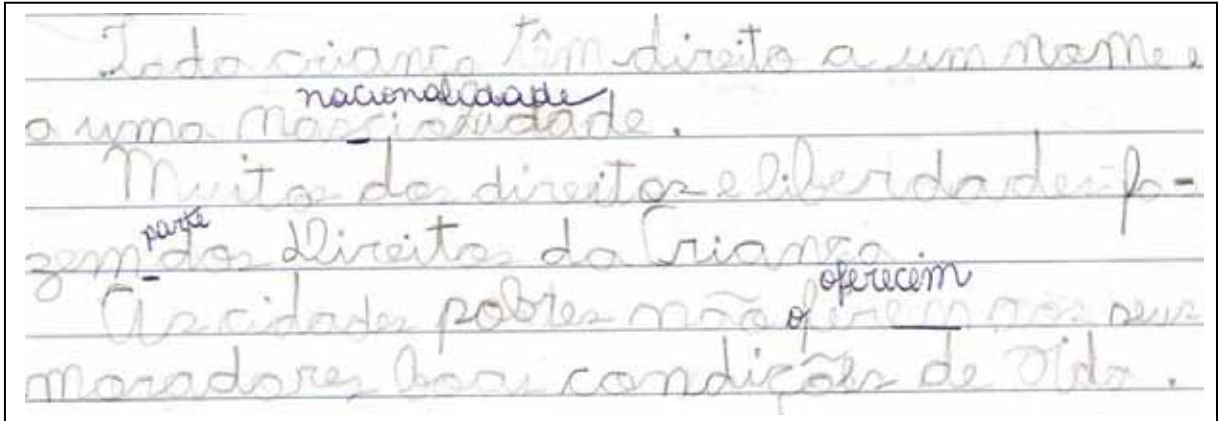 Toda criança têm direito a um nome e
nacionalidade
a uma nascionalidade.
Muitos dos direitos e liberdades fa-
parte
zem dos Direitos da Criança.
oferecem
As cidades pobres não oferem aos seus
moradores boas condições de vida.